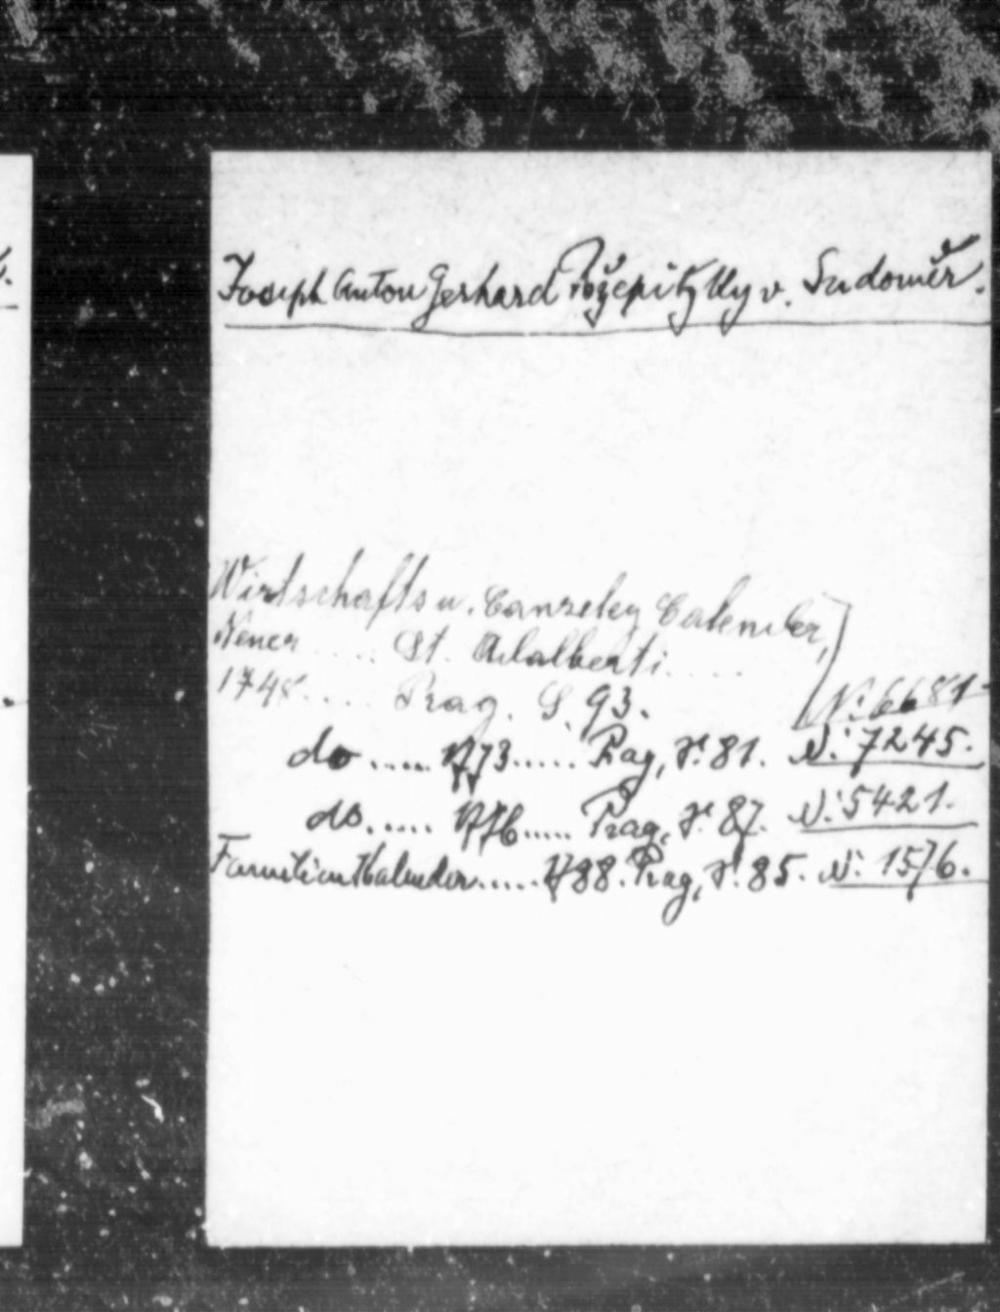 Joseph Anton Gerhard Požepitzky v. Sudoměř.
Wirtschafts u. Canzeley Calender,
Neuer ..... St. Adalberti .....
1748..... Prag. S. 93. N: 6681
do ..... 1773..... Prag, S. 81. N: 7245.
do..... 1776..... Prag, S. 87. N: 5421.
Familienkalender..... 1788. Prag, S. 85. N: 1576.